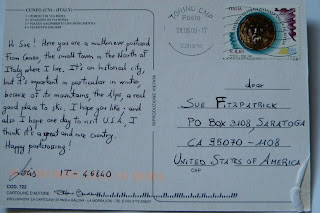 CUNEO (CN) - (ITALY)
Hi Sue! Here you are a multiview postcard
from Cuneo, the small town in the North of
Italy where I live. It's an historical city,
but it's important in particular in winter,
because of its mountains the Alps, a real
good place to ski. I hope you like it and
also I hope one day to visit U.S.A, I
think it's a great and nice country.
Happy postcrossing!
IT - 46640
COD. 722
CARTOLINE D'AUTORE
TORINO CMP
Poste
Italiane
ITALIA
SUE FITZPATRICK
PO BOX 3108, SARATOGA
CA 95070 - 1108
UNITED STATES OF AMERICA
CAP